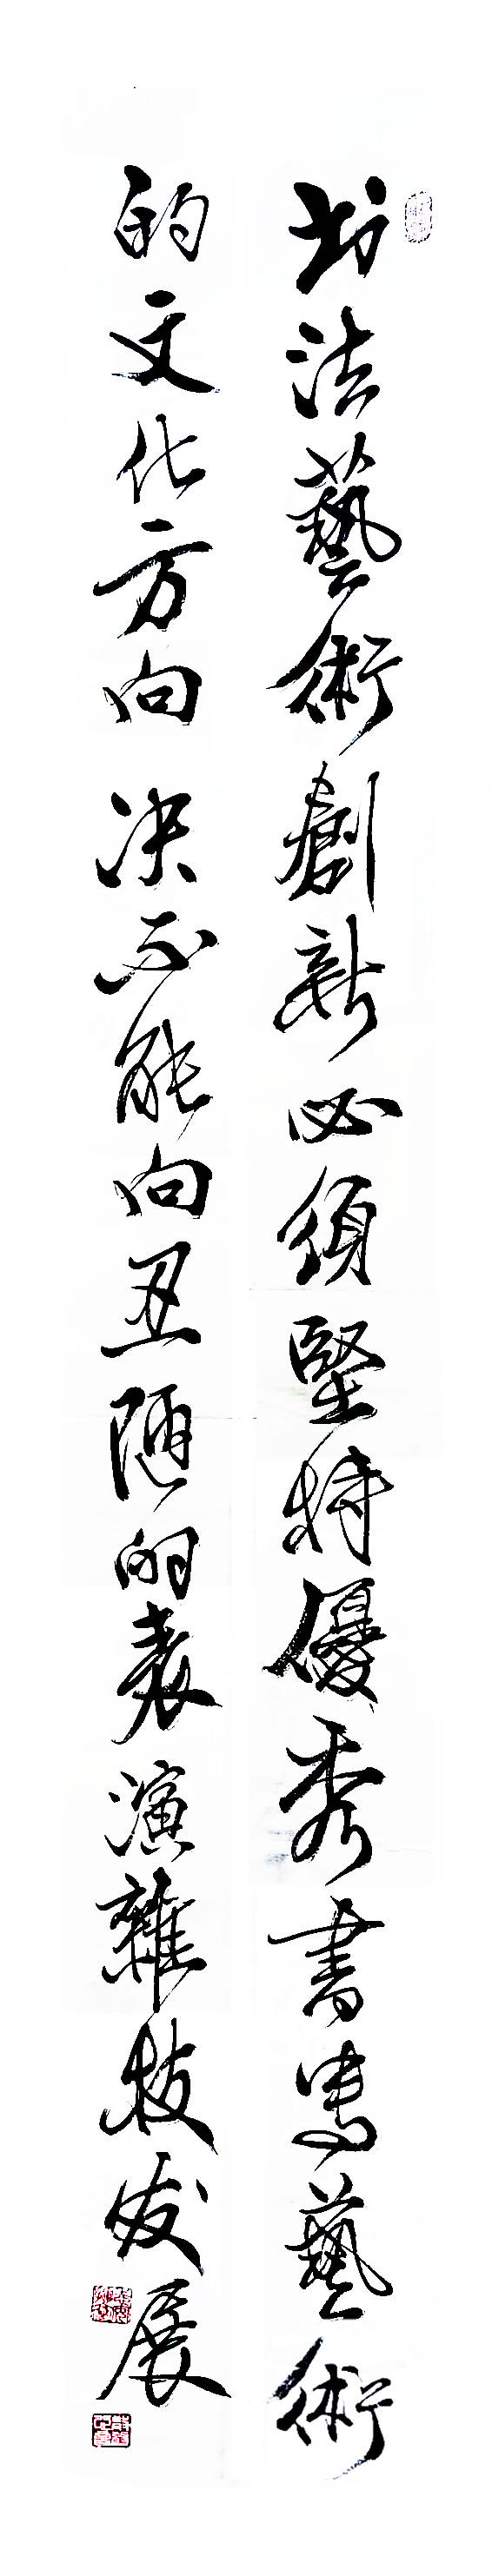 书法藝術創新必須堅持優秀書寫藝術
的文化方向决不能向丑陋的表演雜技发展